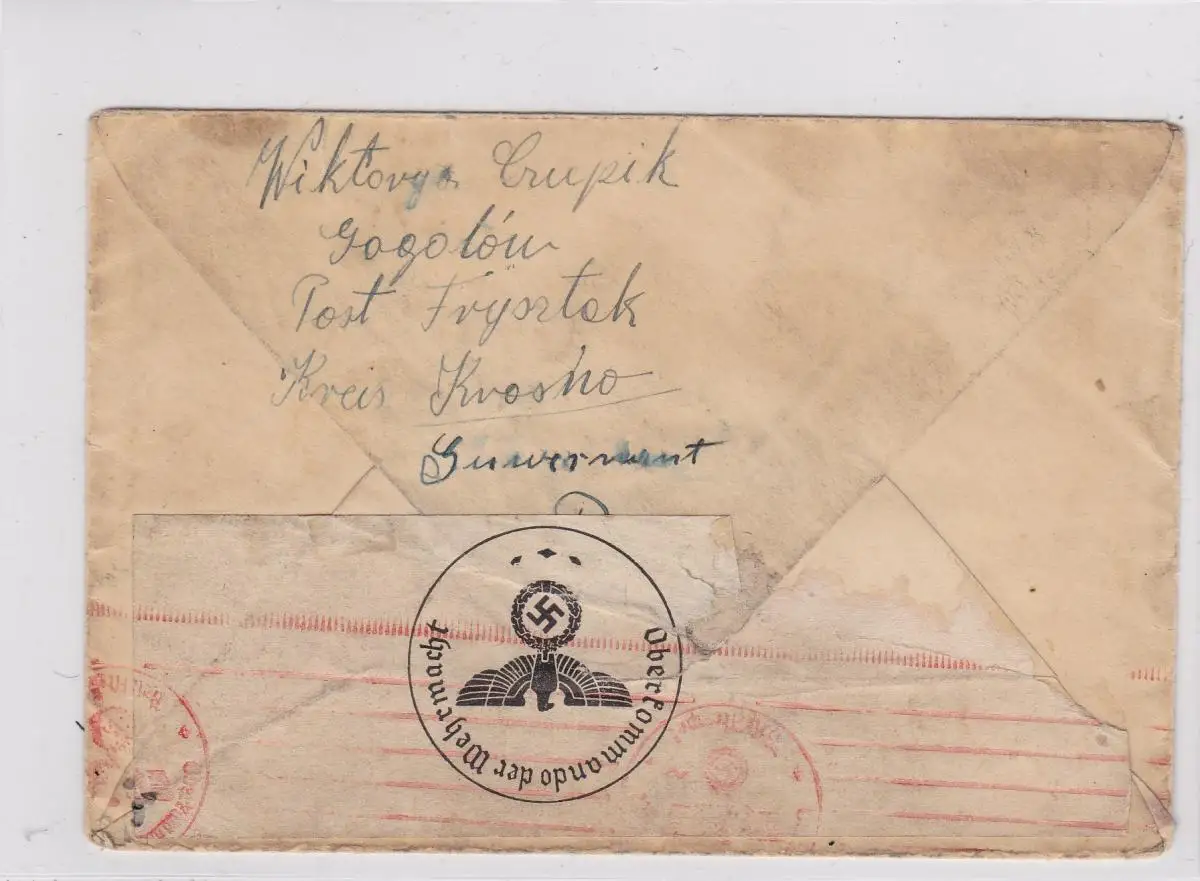 Wiktorya Czupik
Gogolów
Post Frysztak
Kreis Krosno
Guwernant
Oberkommando der Wehrmacht